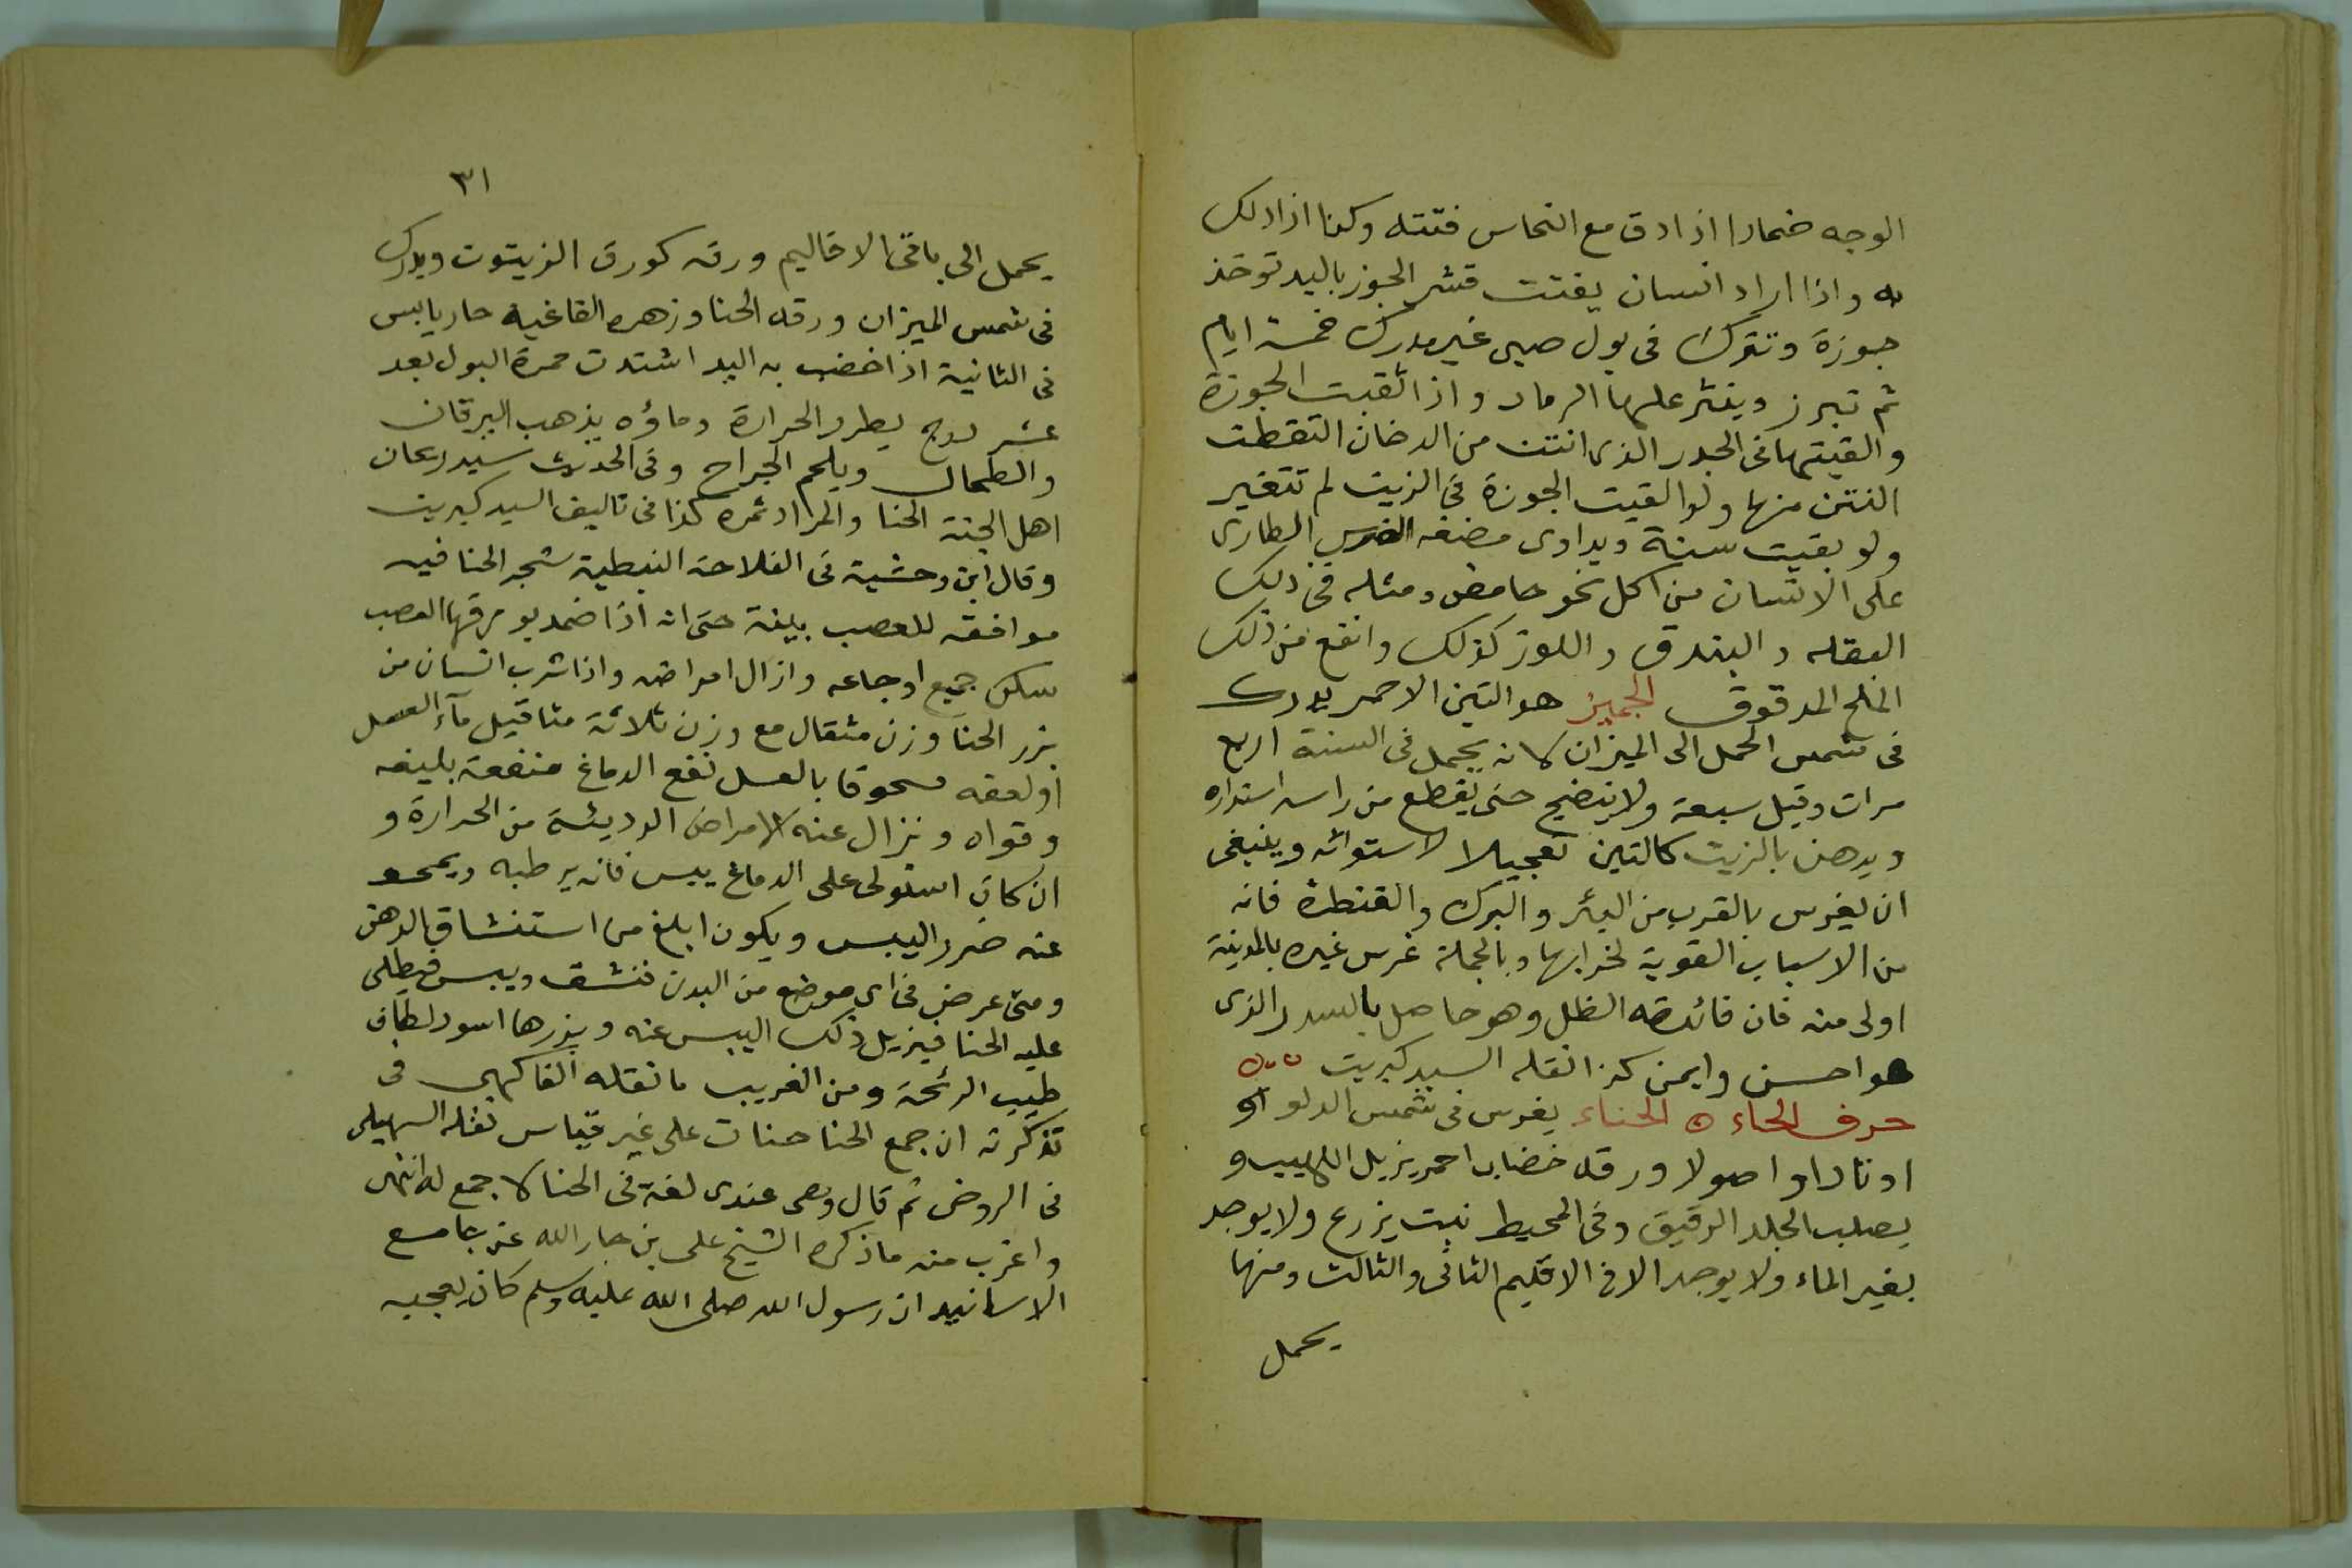 الوجه ضمادا اذا دق مع النحاس فتته وكذا اذا دلك
به واذا اراد انسان يفتت قشر الجوز باليد توخذ
جوزة وتترك فى بول صبى غير مدرك خمسة ايام
ثم تبرز وينثر عليها الرماد واذا ثقبت الجوزة
والقيتها فى الجدر الذى انتن من الدخان التقطت
النتن منها ولو القيت الجوزة فى الزيت لم تتغير
ولو بقيت سنة ويداوى مضغه الضرس الطارى
على الانسان من اكل نحو حامض ومثله فى ذلك
البقله والبندق واللوز كذلك وانفع من ذلك
الملح المدقوق الجميز هو التين الاحمر يدرك
فى شمس الحمل الى الميزان كانه يحمل فى السنة اربع
مرات وقيل سبعة ولا ينضج حتى يقطع من راسه استداره
ويدهن بالزيت كالتين تعجيلا لاستوائه وينبغى
ان يغرس بالقرب من البئر والبرك والقنطرة فانه
من الاسباب القوية لخرابها وبالجملة غرس غيره بالمدينة
اولى منه فان فائدته الظل وهو حاصل بالسدر الذى
هو احسن وايمن كذا نقله السيد كبريت
حرف الحاء الحناء يغرس فى شمس الدلو او
اوتادا واصولا ورقه خضاب احمر يزيل اللهيب و
يصلب الجلد الرقيق وفى المحيط نبت يزرع ولا يوجد
بغير الماء ولا يوجد الا فى الاقليم الثانى والثالث ومنها
يحمل
٣١
يحمل الى باقى الاقاليم ورقه كورق الزيتون ويدرك
فى شمس الميزان ورقه الحنا وزهره الفاغية حار يابس
فى الثانية اذا خضب به اليد اشتدت حمرة البول بعد
عشر درج يطرد الحرارة وماؤه يذهب اليرقان
والطحال ويلحم الجراح وفى الحديث سيد ريحان
اهل الجنة الحنا والمراد ثمره كذا فى تاليف السيد كبريت
وقال ابن وحشية فى الفلاحة النبطية شجر الحنا فيه
موافقه للعصب بليغة حتى انه اذا ضمد بورقها العصب
سكن جميع اوجاعه وازال امراضه واذا شرب انسان من
بزر الحنا وزن مثقال مع وزن ثلاثة مثاقيل مآء العسل
او لعقه مسحوقا بالعسل نفع الدماغ منفعة بليغه
وقواه ونزال عنه الامراض الرديئة من الحرارة و
ان كان استولى على الدماغ يبس فانه يرطبه ويمحو
عنه ضرر اليبس ويكون ابلغ من استنشاق الدهن
ومتى عرض فى اى موضع من البدن تنشف ويبس فيطلى
عليه الحنا فيزيل ذلك اليبس عنه وبزرها اسود لطاف
طيب الرئحة ومن الغريب ما نقله الفاكهى فى
تذكرته ان جمع الحنا حنات على غير قياس نقله السهيلى
فى الروض ثم قال وهى عندى لغة فى الحنا لا جمع له انتهى
واغرب منه ما ذكره الشيخ على بن جار الله عن جامع
الاسانيد ان رسول الله صلى الله عليه وسلم كان يعجبه